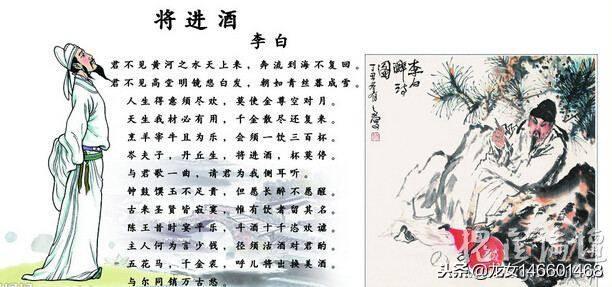 将进酒
李白
君不见黄河之水天上来，奔流到海不复回。
君不见高堂明镜悲白发，朝如青丝暮成雪。
人生得意须尽欢，莫使金尊空对月。
天生我材必有用，千金散尽还复来。
烹羊宰牛且为乐，会须一饮三百杯。
岑夫子，丹丘生，将进酒，杯莫停。
与君歌一曲，请君为我侧耳听。
钟鼓馔玉不足贵，但愿长醉不愿醒
古来圣贤皆寂寞，惟有饮者留其名。
陈王昔时宴平乐，斗酒十千恣欢谑。
主人何为言少钱，径须沽酒对君酌。
五花马，千金裘，呼儿将出换美酒。
与尔同销万古愁。
李白
图
头条@龙女146601468